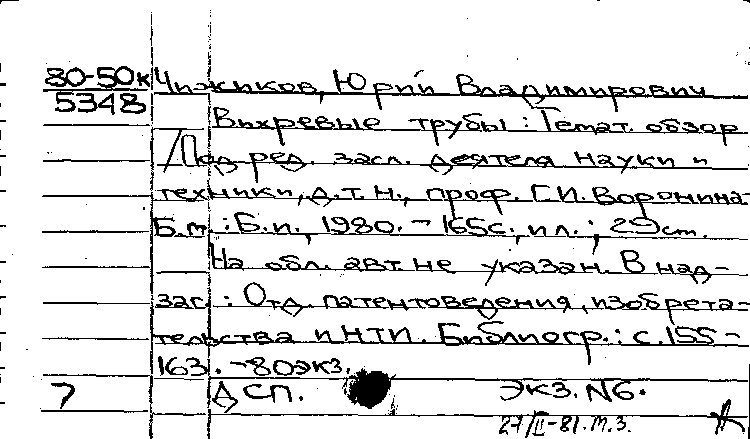 80-50к Чижиков, Юрий Владимирович
5348
Вихревые трубы : Темат. обзор
/Под ред. засл. деятеля науки и
техники, д.т.н., проф. Г.И. Воронина.
Б.м. : Б.и., 1980. - 165с., ил. ; 29см.
На обл. авт. не указан. В над-
заг. : Отд. патентоведения, изобрета-
тельства и НТИ. Библиогр.: с.155-
163. -80экз.
7 ДСП. Экз. N6.
27/II-81. т.3.